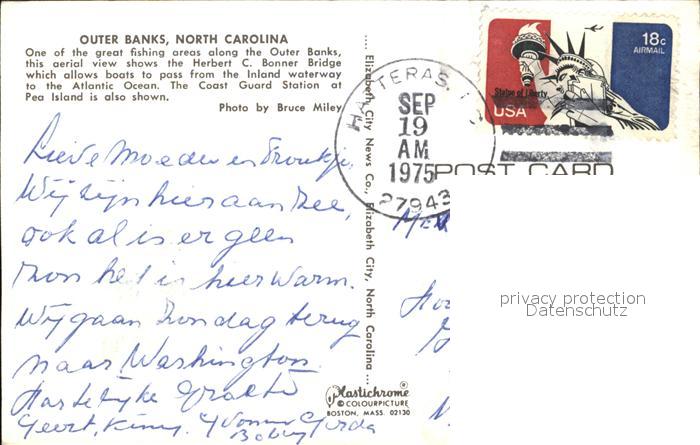 OUTER BANKS, NORTH CAROLINA
One of the great fishing areas along the Outer Banks,
this aerial view shows the Herbert C. Bonner Bridge
which allows boats to pass from the Inland waterway
to the Atlantic Ocean. The Coast Guard Station at
Pea Island is also shown.
Photo by Bruce Miley
Lieve Moeder en
Wij zijn hier aan Zee,
ook al is er geen
zon het is hier warm.
Wij gaan Zondag terug
naar Washington.
Hartelijke
Geert, Kinny, Yvonne Gerda
Bobby
.... Elizabeth City News Co., Elizabeth City, North Carolina ....
Plastichrome®
© COLOURPICTURE
BOSTON, MASS. 02130
HATTERAS,
SEP
19
AM
1975
27943
18c
AIRMAIL
Statue of Liberty
USA
POST CARD
privacy protection
Datenschutz